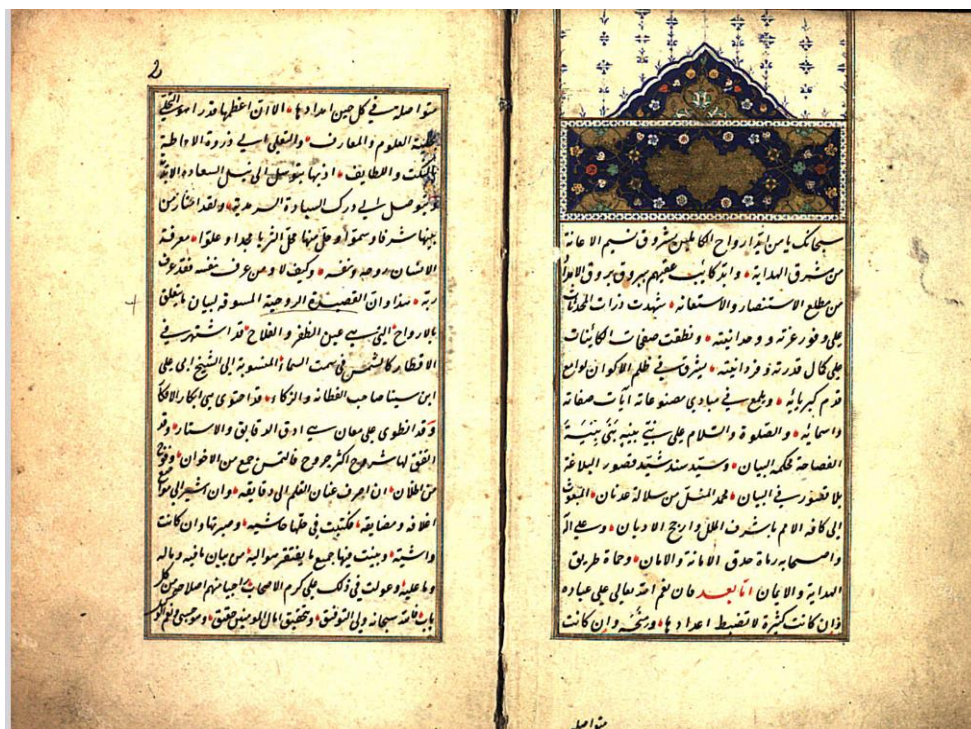 سبحانك يا من ايد ارواح الكاملين بشروق نسيم الاعانة
من مشرق الهداية وابد بروق
من مطلع الاستنصار والاستعانه شهدت ذرات المحدثات
على وفور عزته ووحدانيته ونطقت صفحات الكاينات
على كمال قدرته وفردانيته يشرق في ظلم الاكوان لوامع
قدم كبريائه ويلمع في مبادي مصنوعاته آيات صفاته
واسمايه والصلوة والسلام على نبي
الفصاحة محكمة البيان وسيد سند شيد قصور البلاغة
بلا قصور في البيان محمد من سلالة عدنان المبعوث
الى كافه الامم باشرف الملل وارجح الاديان وعلى اله
واصحابه رماة حدق الامانة والامان وحماة طريق
الهداية والايمان اما بعد فان نعم الله تعالى على عباده
وان كانت كثيرة لا تضبط اعدادها وان كانت
متواصلة
2
متواصلة في كل حين امدادها الا ان اعظمها قدرا هو التحلي
بحلية العلوم والمعارف والتعلي الى ذروة الاحاطة
بالنكت واللطايف اذ بها يتوسل الى نيل السعادة الابدية
ويتوصل الى درك السيادة السرمدية ولقد امتاز من
بينها شرفا وسموا وحل منها محل الثريا مجدا وعلوا معرفة
الانسان روحه ونفسه وكيف لا ومن عرف نفسه فقد عرف
ربه هذا وان القصيدة الروحية المسوقة لبيان ما يتعلق
بالارواح التي هي عين الظفر والفلاح قد اشتهر في
الاقطار كالشمس في سمت السماء المنسوبة الى الشيخ ابي علي
ابن سينا صاحب الفطانه والزكاء قد احتوى على ابكار الافكار
وقد انطوى على معان هي ادق الدقايق والاستار وقد
اتفق لها شروح اكثر جروح فالتمس جمع من الاخوان
من الخلان ان اصرف عنان القلم الى دقايقه وان اشير الى مواضع
اغلاقه ومضايقه فكتبت في حلها حاشيه وصيرتها وان كانت
واشية وبينت فيها جميع ما يفتقر سواليه من بيان مافيه وماله
وما عليه وعولت في ذلك على كرم الاصحاب راجيا منهم اصلاحه من كل
باب فانه سبحانه ولي التوفيق وبتحقيق امال المومنين حقيق وهو حسبي ونعم الوكيل